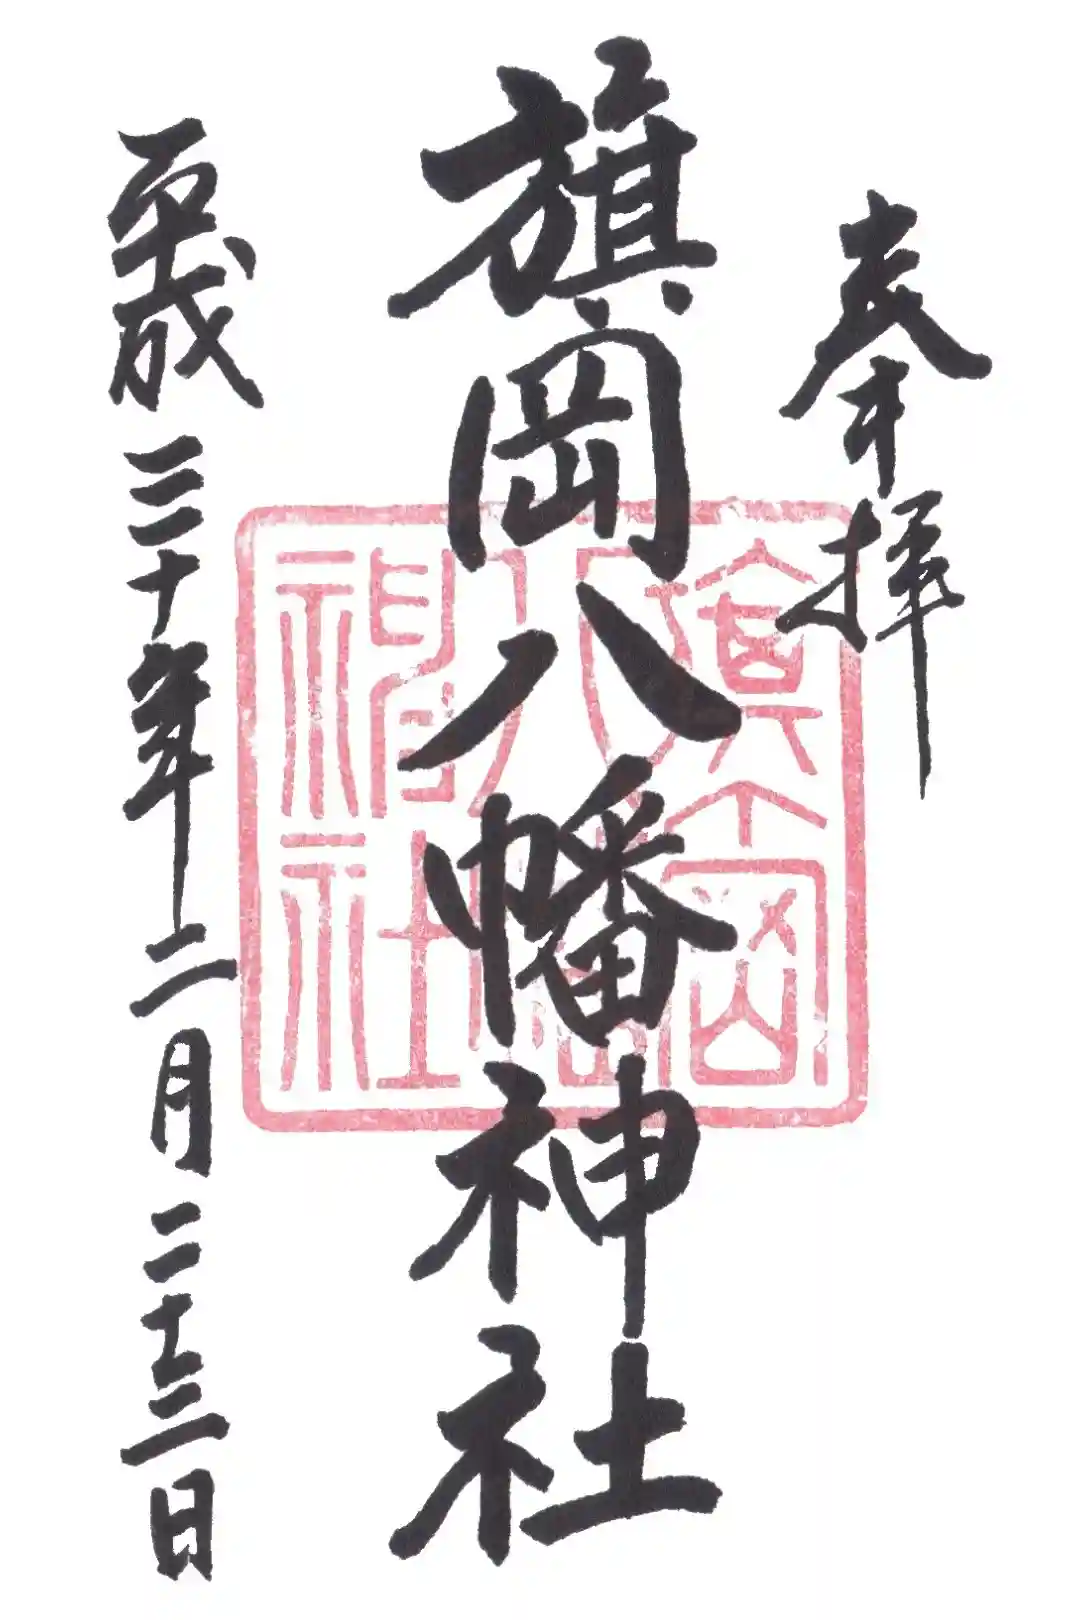 奉拝
旗岡八幡神社
平成三十年二月二十三日
旗岡八幡神社